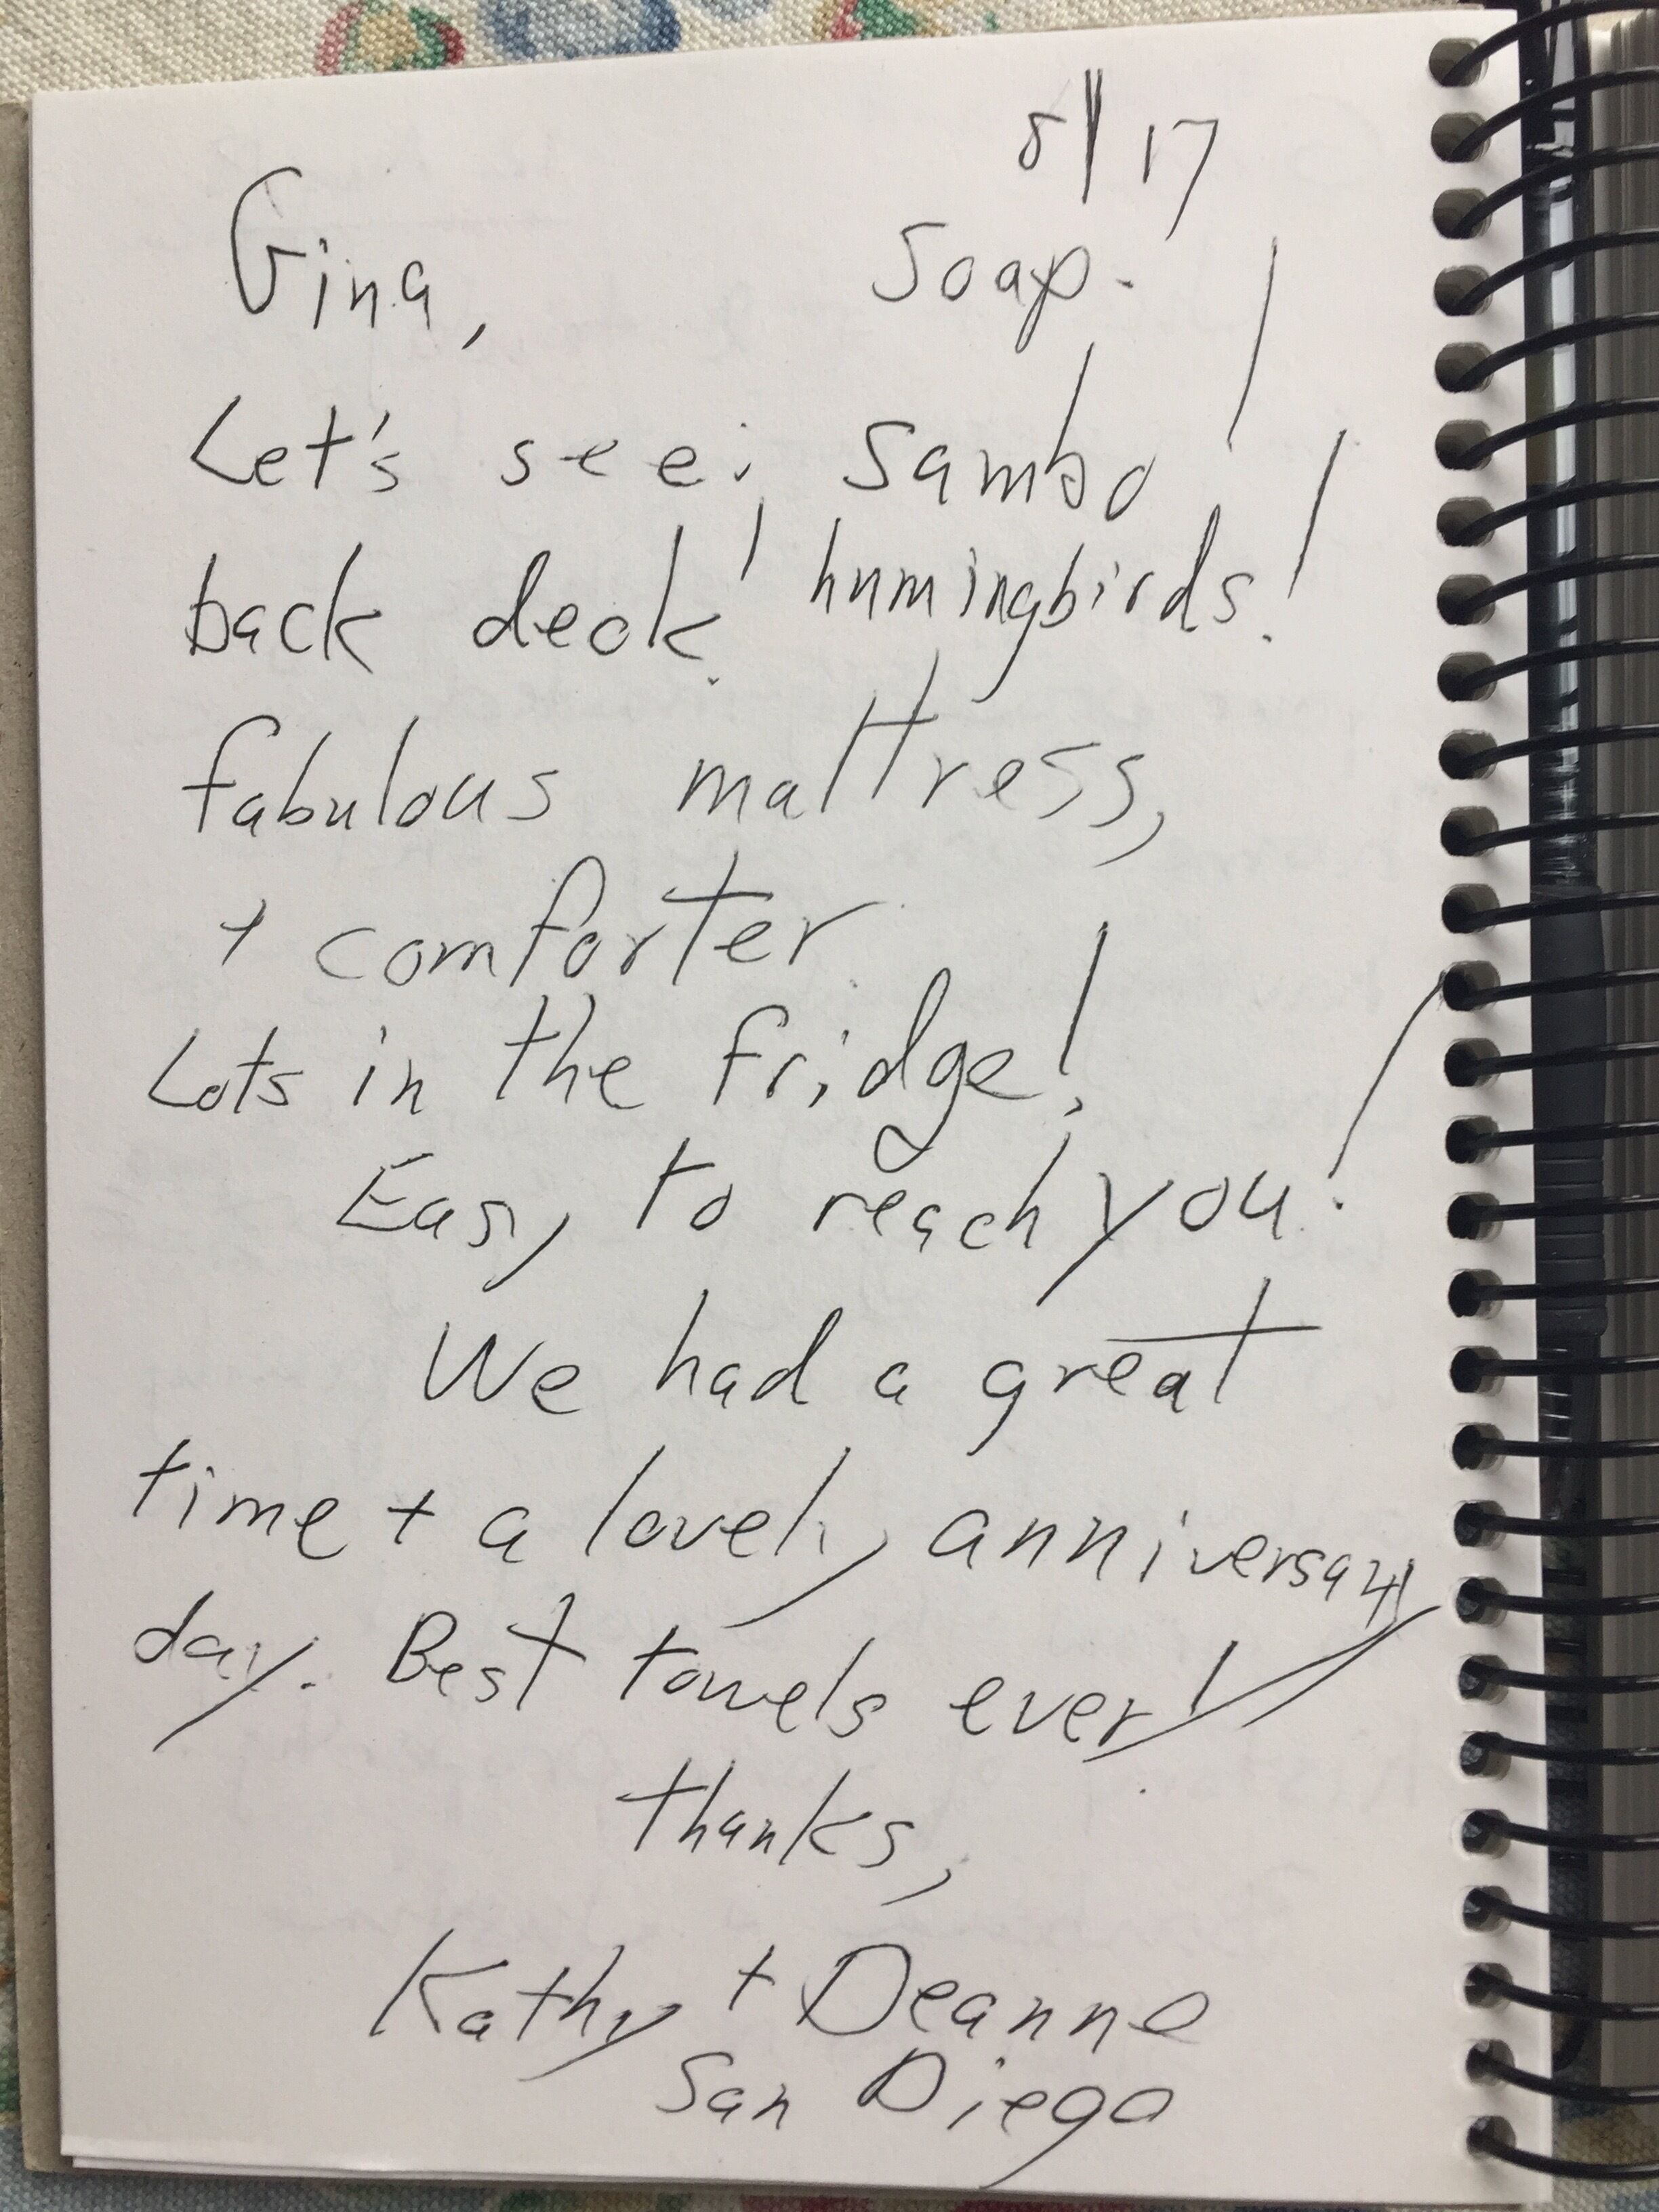 5/17
Gina, Soap.
Let's see: Sambo!
back deck! humingbirds!
fabulous mattress,
+ comforter.
Lots in the fridge!
Easy to reach you!
We had a great
time + a lovely anniversary
day. Best towels ever!
Thanks,
Kathy + Deanne
San Diego